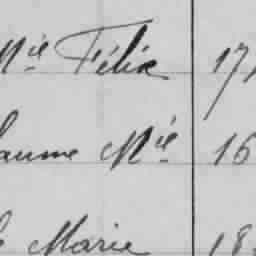 Mie Félix 17
aume Mie 16
Marie 18